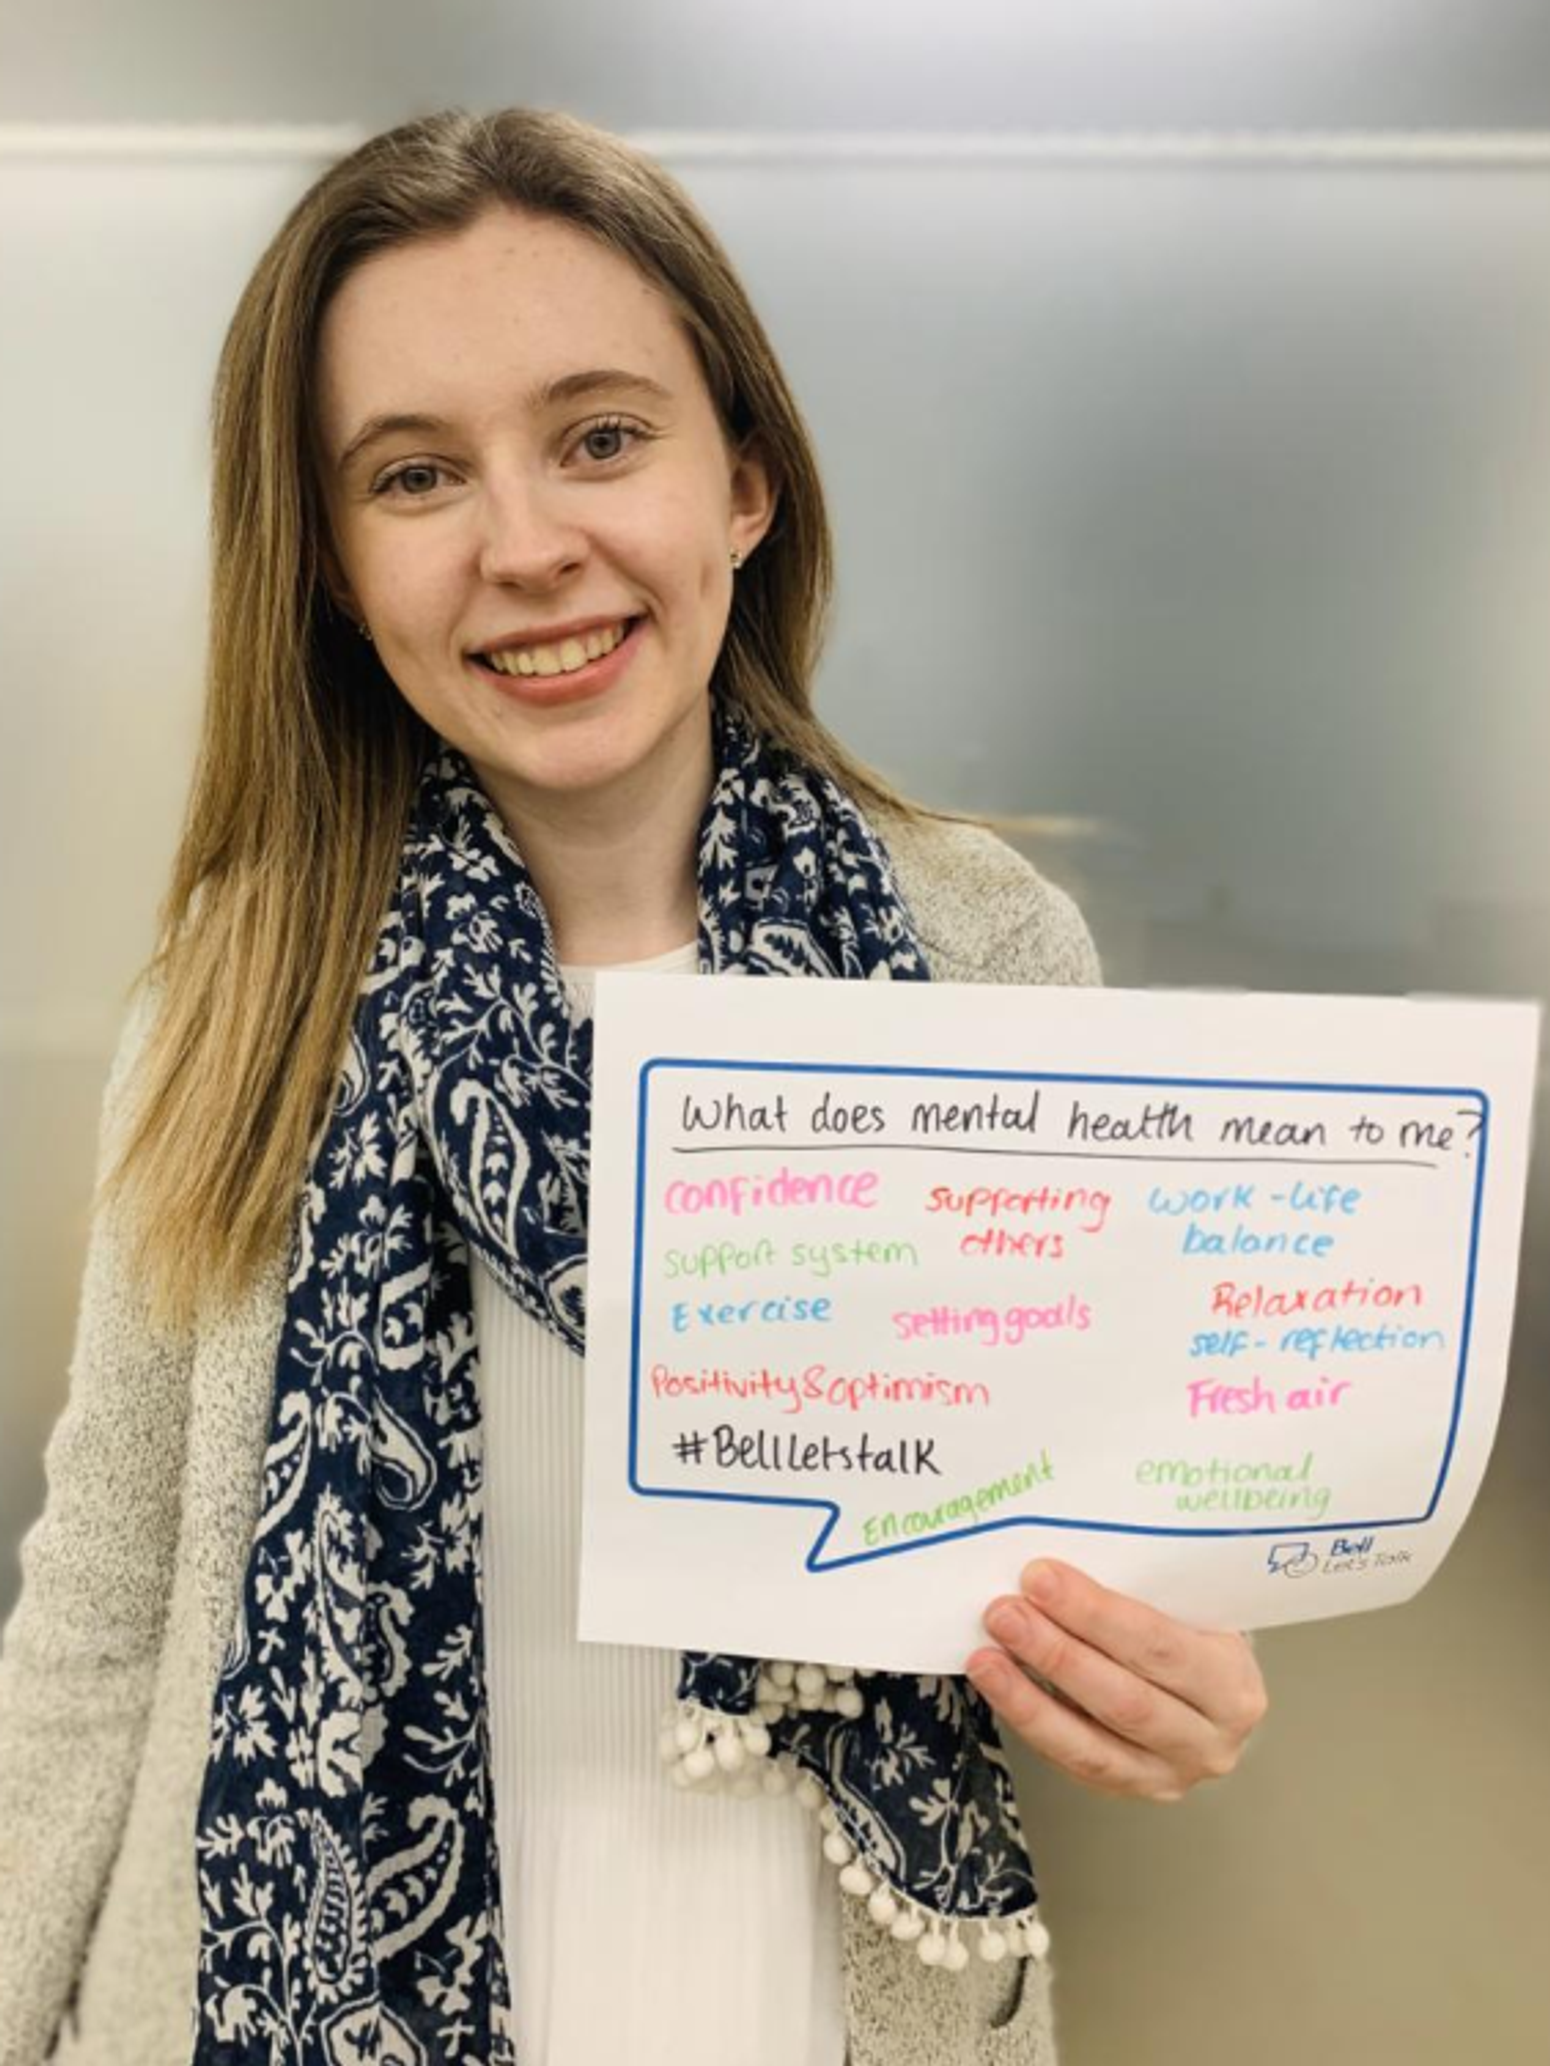 What does mental health mean to me?
confidence
supporting
others
work-life
balance
support system
Exercise
setting goals
Relaxation
self-reflection
Positivity & optimism
Fresh air
#BellLetstalk
Encouragement
emotional
wellbeing
Bell
Let's Talk